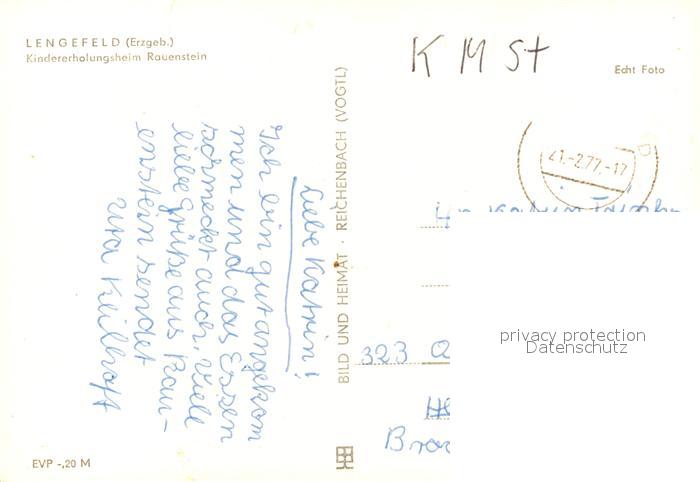 LENGEFELD (Erzgeb.)
Kindererholungsheim Rauenstein
K M St
Echt Foto
21.-2.77.-17
Liebe Katrin!
Ich bin gut angekom
men und das Essen
schmeckt auch. Viele
liebe Grüße aus Rau-
enstein sendet
BILD UND HEIMAT · REICHENBACH (VOGTL)
323
privacy protection
Datenschutz
EVP -,20 M